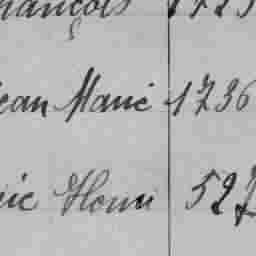 rançois 1723
ean Marie 1736
ie Henri 527